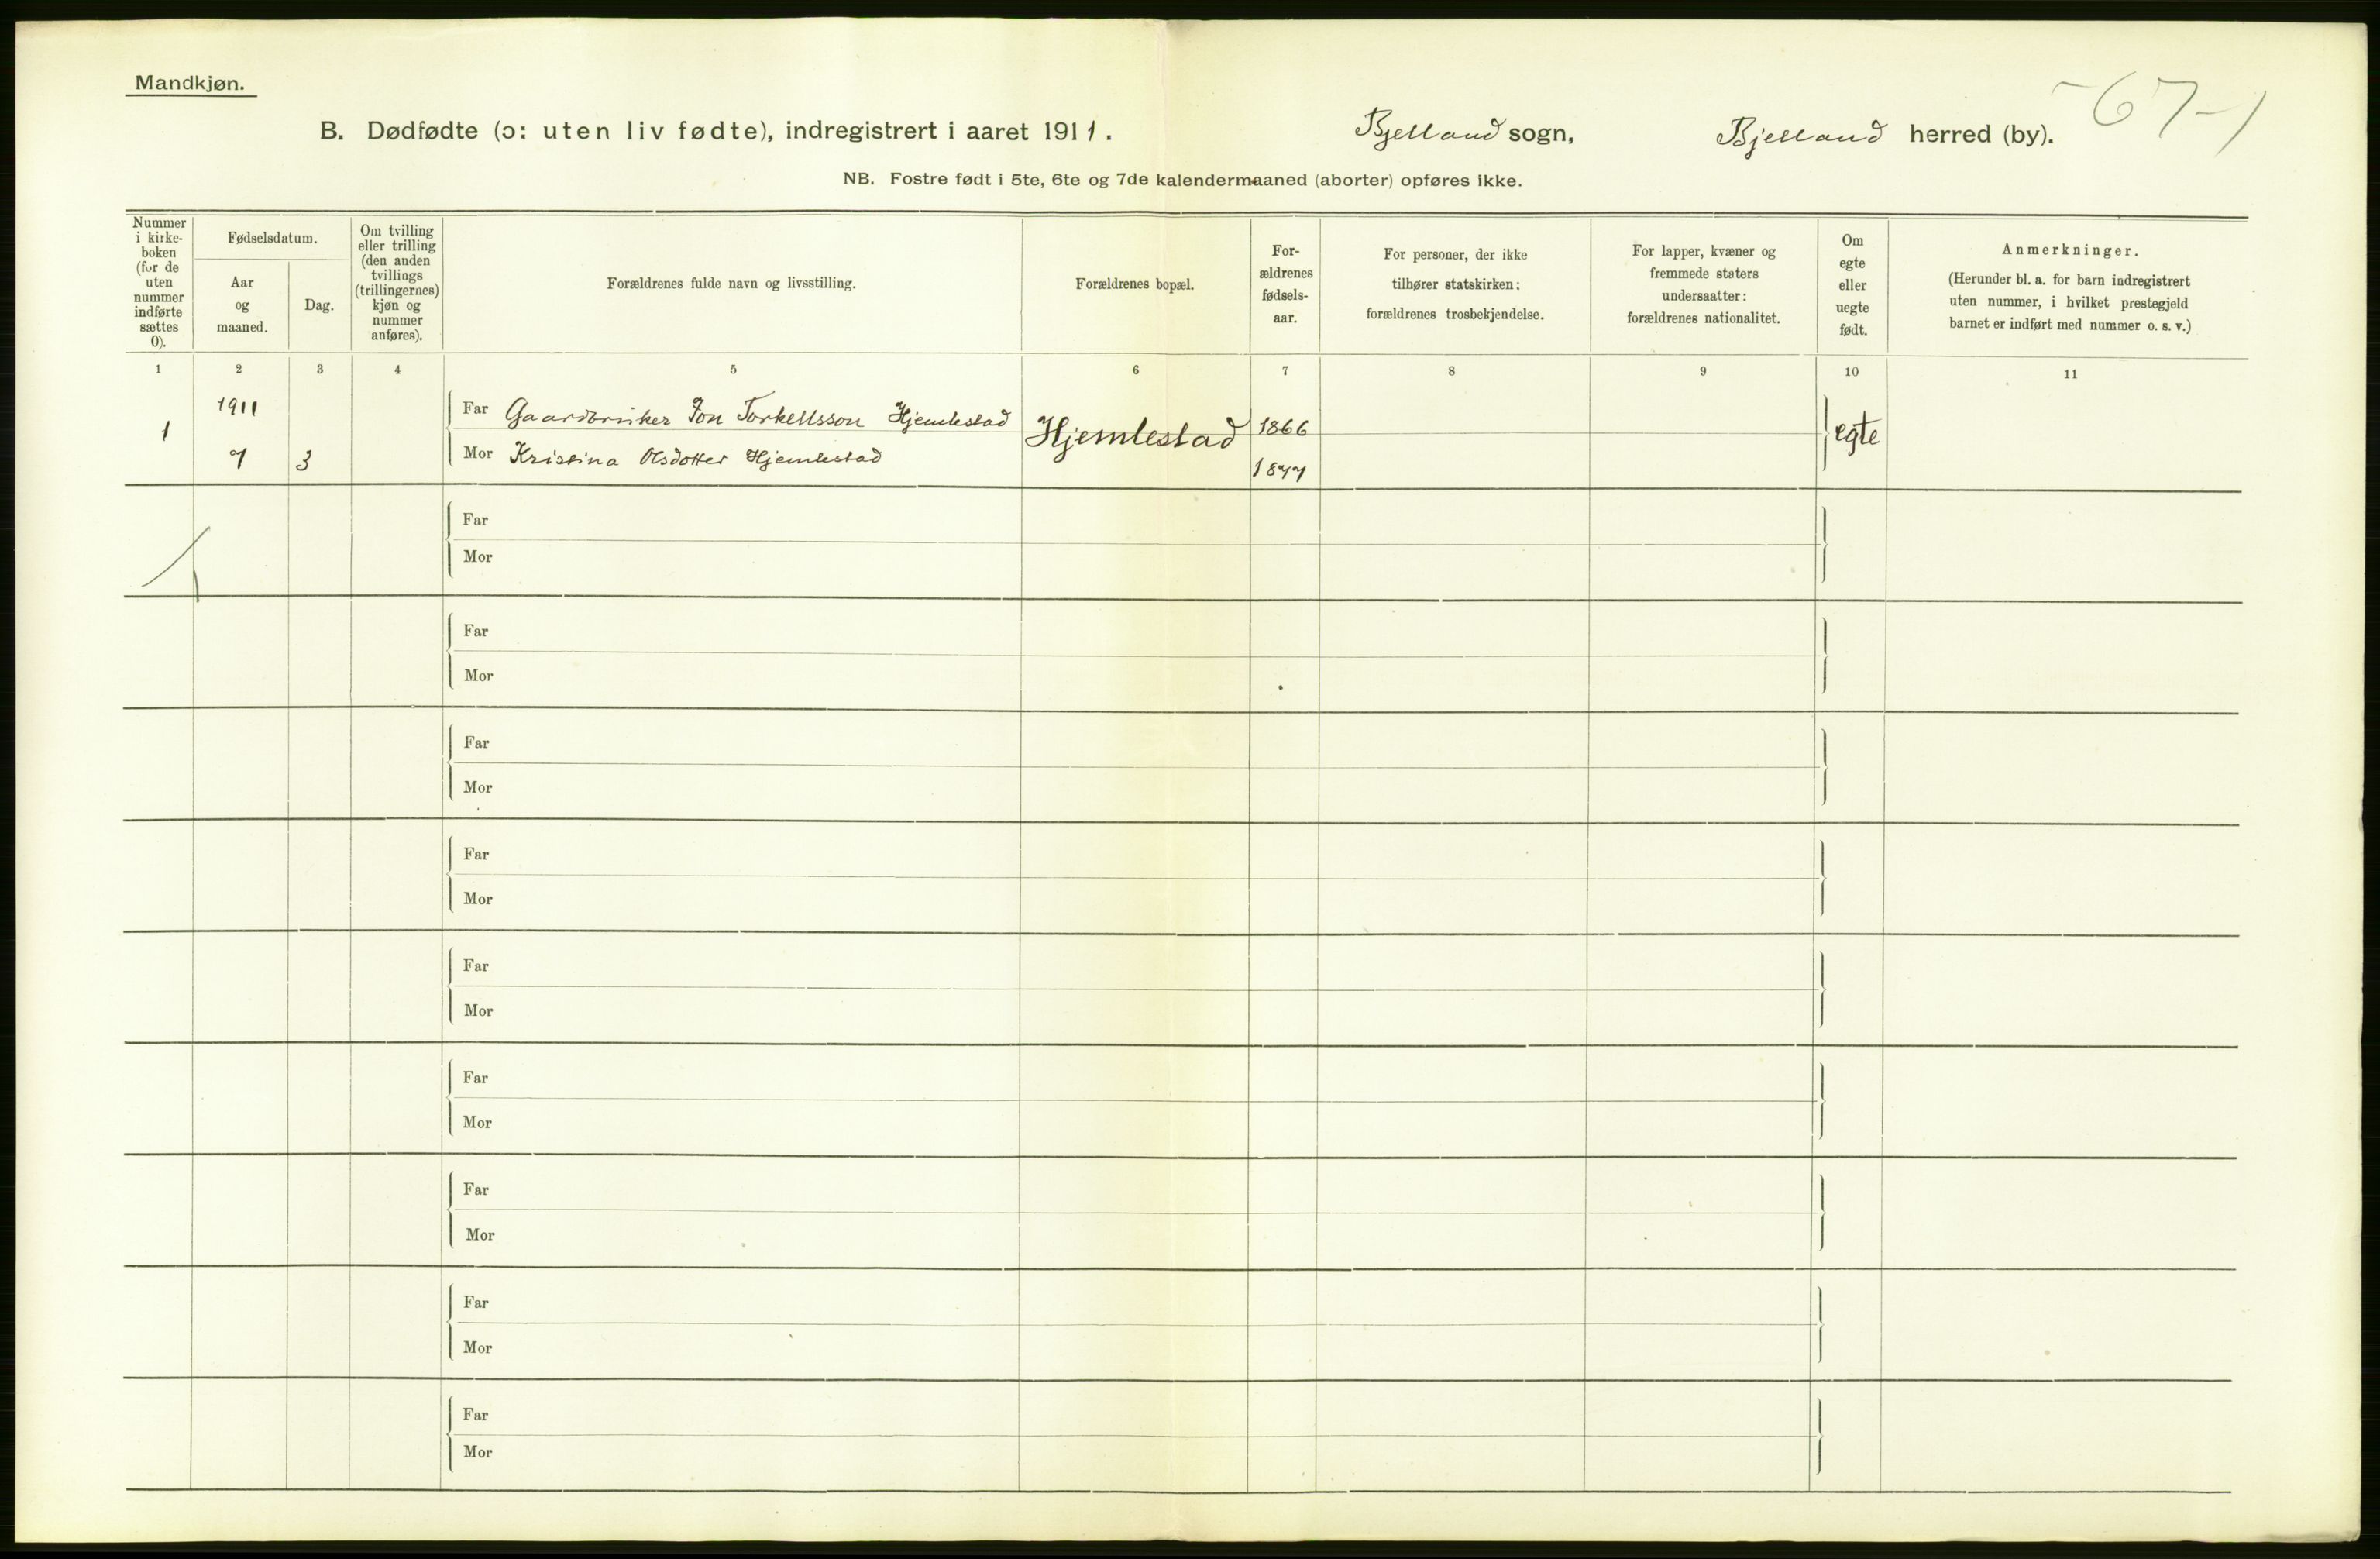 Mandkjøn.
67-1
B. Dødfødte (ɔ: uten liv fødte), indregistrert i aaret 1911. Bjelland sogn, Bjelland herred (by).
NB. Fostre født i 5te, 6te og 7de kalendermaaned (aborter) opføres ikke.
Nummer
i kirke-
boken
(for de
uten
nummer
indførte
sættes
0).
Fødselsdatum.
Aar
og
maaned.
Dag.
Om tvilling
eller trilling
(den anden
tvillings
(trillingernes)
kjøn og
nummer
anføres).
Forældrenes fulde navn og livsstilling.
Forældrenes bopæl.
For-
ældrenes
fødsels-
aar.
For personer, der ikke
tilhører statskirken:
forældrenes trosbekjendelse.
For lapper, kvæner og
fremmede staters
undersaatter:
forældrenes nationalitet.
Om
egte
eller
uegte
født.
Anmerkninger.
(Herunder bl. a. for barn indregistrert
uten nummer, i hvilket prestegjeld
barnet er indført med nummer o. s. v.)
1 2 3 4 5 6 7 8 9 10 11
1
1911
7 3
Far Gaardbruker Jon Torkellsson Hjemlestad
Mor Kristina Olsdotter Hjemlestad
Hjemlestad
1866
1877
egte
Far
Mor
Far
Mor
Far
Mor
Far
Mor
Far
Mor
Far
Mor
Far
Mor
Far
Mor
Far
Mor